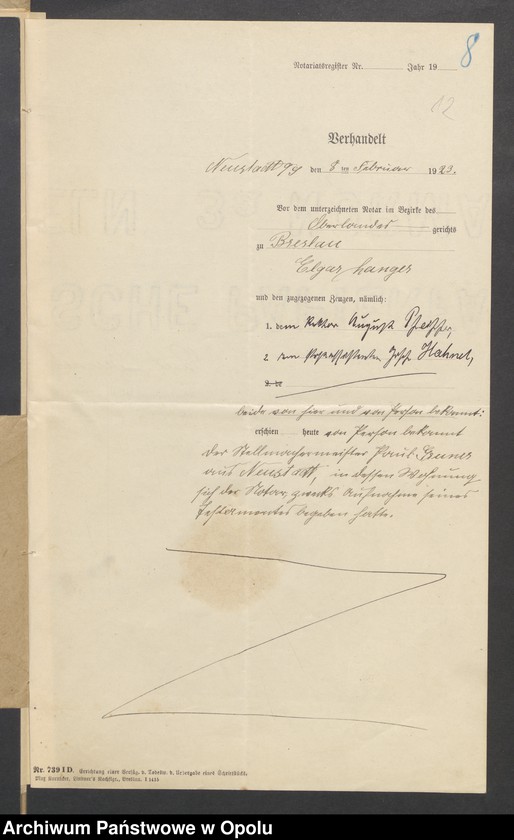 8
Notariatsregister Nr. Jahr 19
12
Verhandelt
Neustadt O/S den 8 ten Februar 1923.
Vor dem unterzeichneten Notar im Bezirke des
Oberlandes gerichts
zu Breslau
Langer
und den zugezogenen Zeugen, nämlich:
1. dem Rektor August
2. dem Hahnel,
3. de
beide von hier und von Person bekannt:
erschien heute von Person bekannt
der Stellmachermeister Paul
aus Neustadt, in dessen Wohnung
sich der Notar zwecks Aufnahme seines
Testamentes begeben hatte.
Nr. 739 I D. Errichtung einer Verfüg. v. Todesw. d. Uebergabe eines Schriftstücks.
Breslau. I
Archiwum Państwowe w Opolu